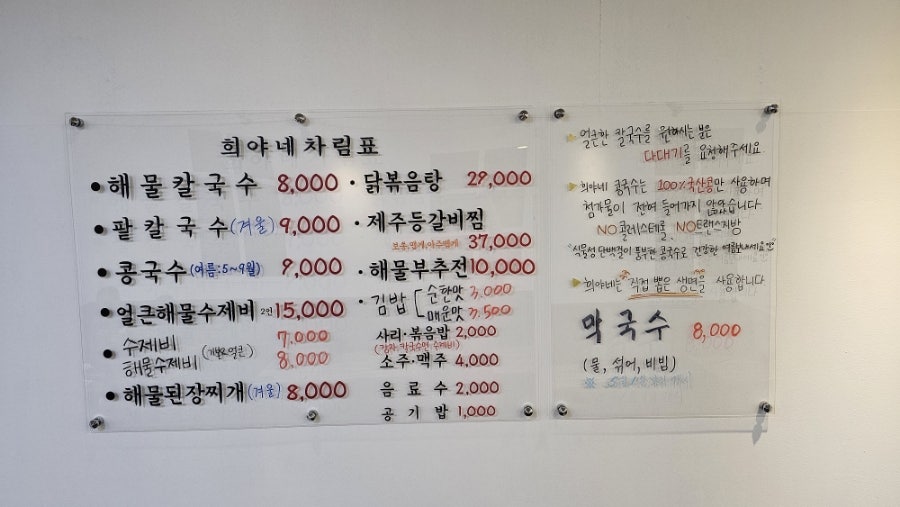 희야네차림표
• 해물칼국수 8,000
• 팥칼국수(겨울) 9,000
• 콩국수(여름:5~9월) 9,000
• 얼큰해물수제비 2인 15,000
• 수제비 7.000
해물수제비 8.000
• 해물된장찌개(겨울) 8,000
· 닭볶음탕 29,000
· 제주등갈비찜
보통,맵게,아주맵게 37,000
· 해물부추전 10,000
· 김밥 [ 순한맛 3.000
매운맛 3.500
사리·볶음밥 2,000
(감자·칼국수면·수제비)
소주·맥주 4,000
음료수 2,000
공기밥 1,000
얼큰한 칼국수를 원하시는 분은
다대기를 요청해주세요.
희야네 콩국수는 100% 국산콩만 사용하며
첨가물이 전혀 들어가지 않았습니다
NO콜레스테롤, NO트랜스지방
"식물성 단백질이 풍부한 콩국수로 건강한 여름보내세요"
희야네는 직접 뽑은 생면을 사용합니다
막국수 8,000
(물, 섞어, 비빔)